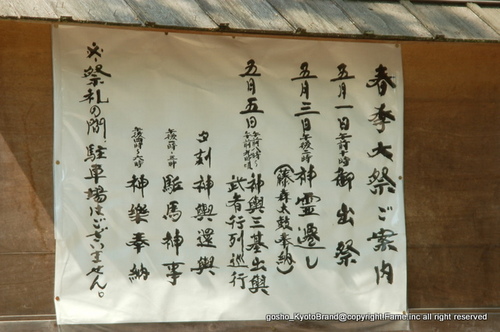 春季大祭ご案内
五月一日 午前十時 御出祭
五月三日 午後二時 神霊遷し
(藤森太鼓奉納)
五月五日 神輿三基出輿
武者行列巡行
夕刻 神輿還輿
駈馬神事
神樂奉納
祭礼の間、駐車場はございません。
gosho_KyotoBrand@copyright.Fame.inc all right reserved